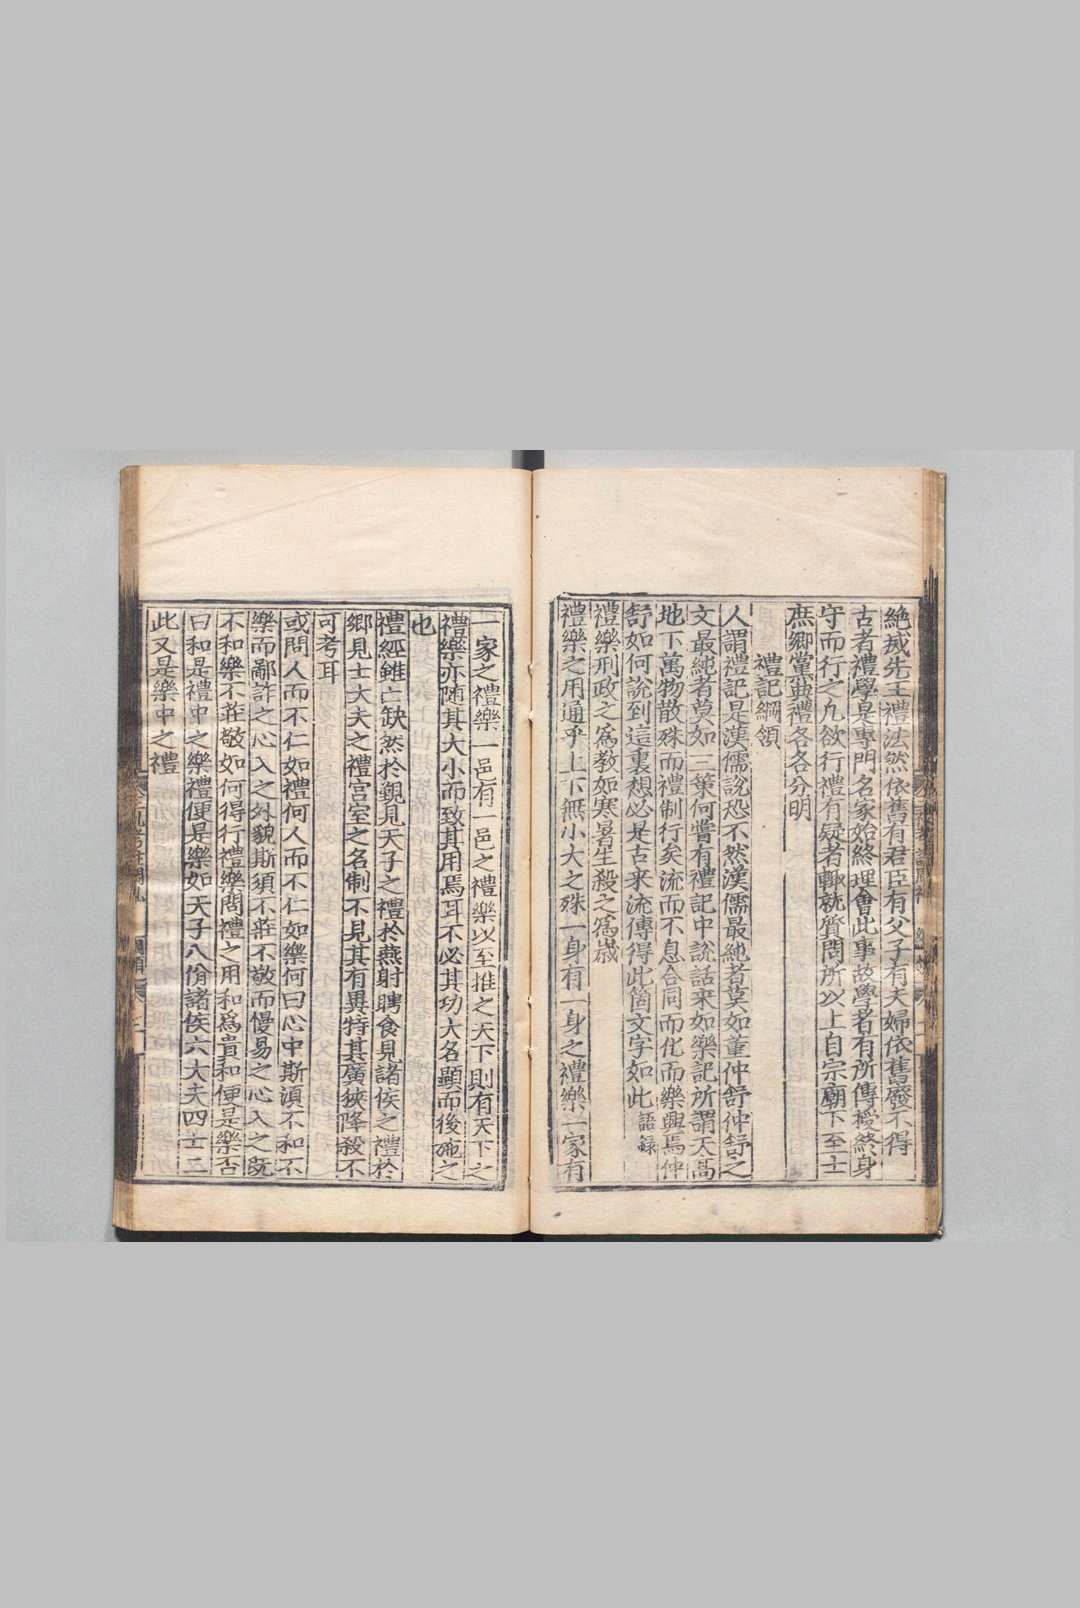 絶滅先王禮法然依舊有君臣有父子有夫婦依舊廢不得
古者禮學是專門名家始終理會此事故學者有所傳授終身
守而行之凡欲行禮有疑者輒就質問所以上自宗廟下至士
庶鄉黨典禮各各分明
禮記綱領
人謂禮記是漢儒說恐不然漢儒最純者莫如董仲舒仲舒之
文最純者莫如三策何嘗有禮記中說話來如樂記所謂天高
地下萬物散殊而禮制行矣流而不息合同而化而樂興焉仲
舒如何說到這裏想必是古来流傳得此箇文字如此語録
禮樂刑政之爲教如寒暑生殺之爲歲
禮樂之用通乎上下無小大之殊一身有一身之禮樂一家有
一家之禮樂一邑有一邑之禮樂以至推之天下則有天下之
禮樂亦随其大小而致其用焉耳不必其功大名顯而後施之
也
禮經雖亡缺然於覲見天子之禮於燕射聘食見諸侯之禮於
鄉見士大夫之禮宫室之名制不見其有異特其廣狹降殺不
可考耳
或問人而不仁如禮何人而不仁如樂何曰心中斯湏不和不
樂而鄙詐之心入之外貌斯須不莊不敬而慢易之心入之既
不和樂不莊敬如何得行禮樂問禮之用和爲貴和便是樂否
曰和是禮中之樂禮便是樂如天子八佾諸侯六大夫四士二
此又是樂中之禮